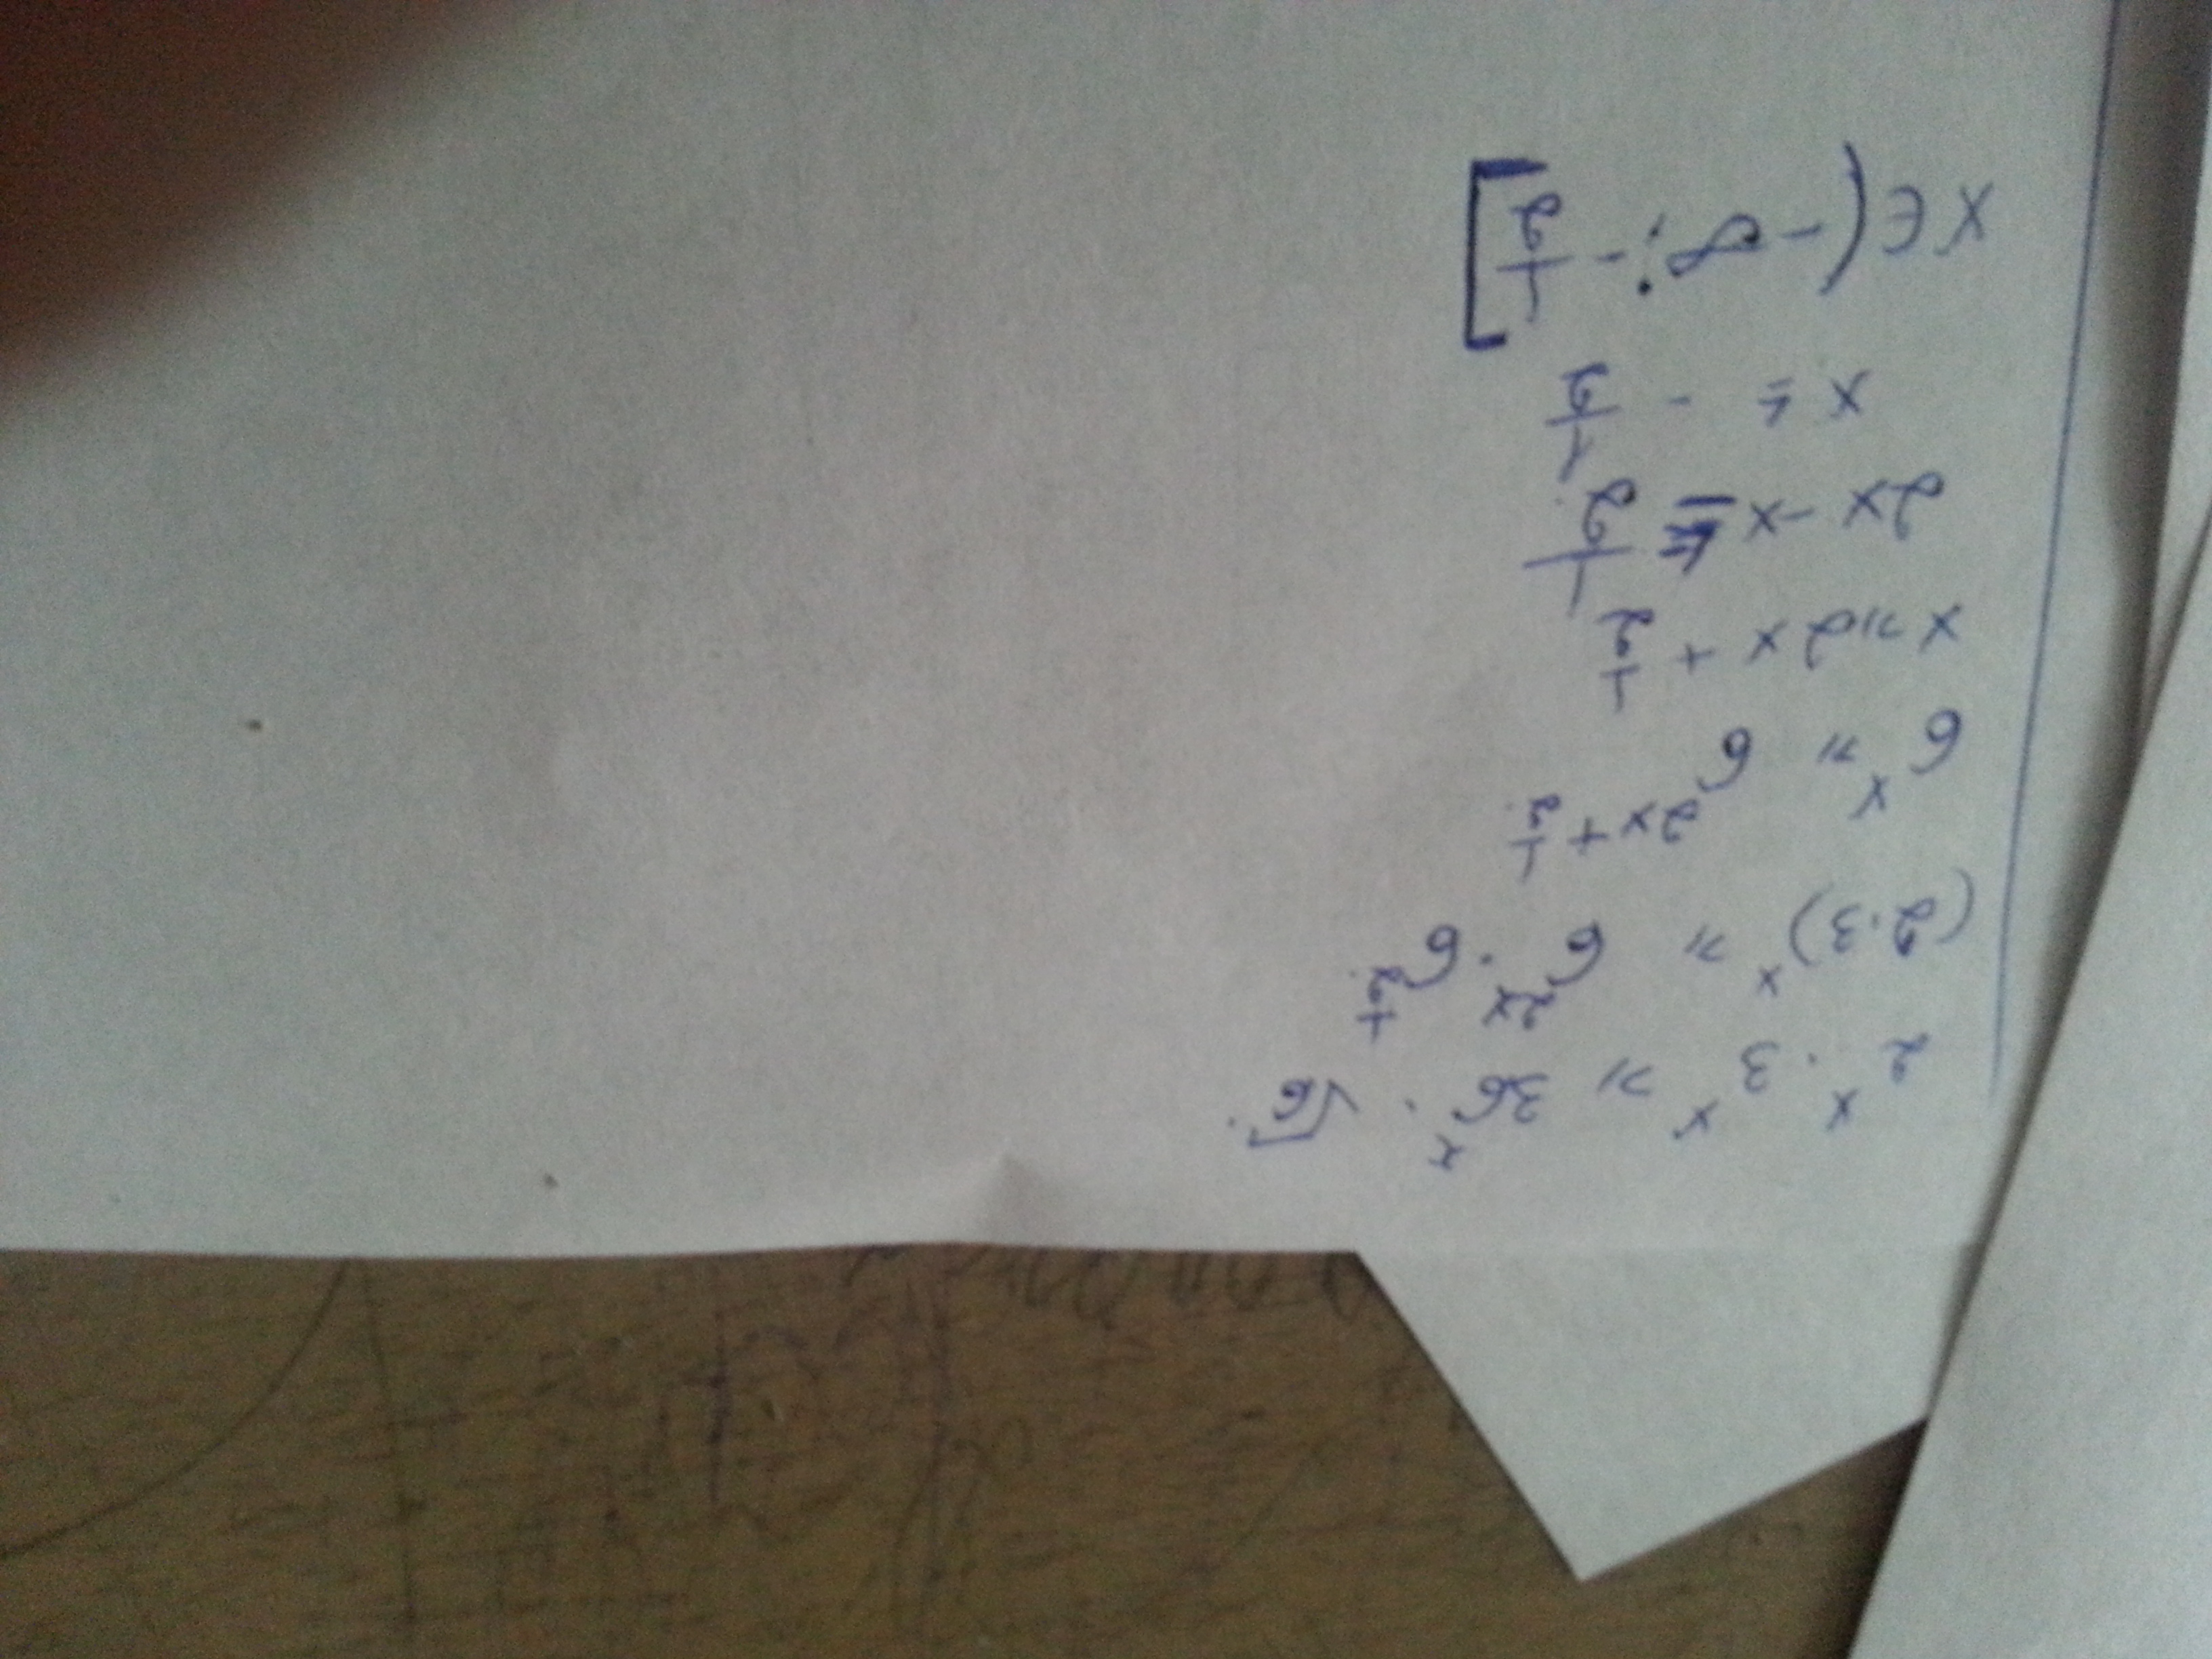 2^x · 3^x ≥ 36^x · √6.
(2·3)^x ≥ 6^{2x} · 6^{1/2}.
6^x ≥ 6^{2x + 1/2}.
x ≥ 2x + 1/2
2x - x ≤ 1/2.
x ≤ - 1/2
x ∈ (-∞; - 1/2]